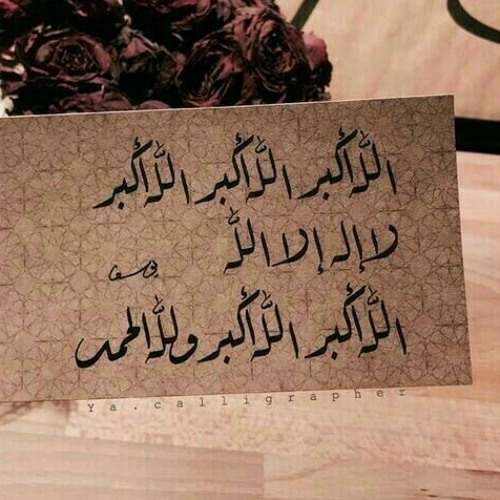 الله أكبر الله أكبر الله أكبر
لا إله إلا الله
الله أكبر الله أكبر ولله الحمد
Ya.calligrapher